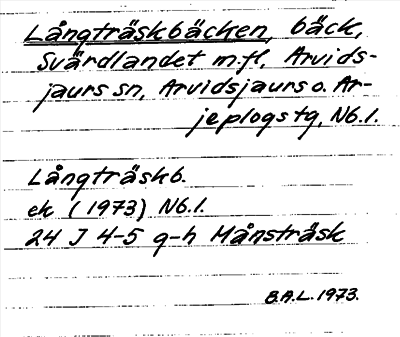 Långträskbäcken, bäck,
Svärdlandet m.fl, Arvids-
jaurs sn, Arvidsjaurs o. Ar-
jeplogs tg, Nb.l.
Långträskb.
ek (1973) Nb.l.
24 J 4-5 g-h Månsträsk
B.A.L. 1973.